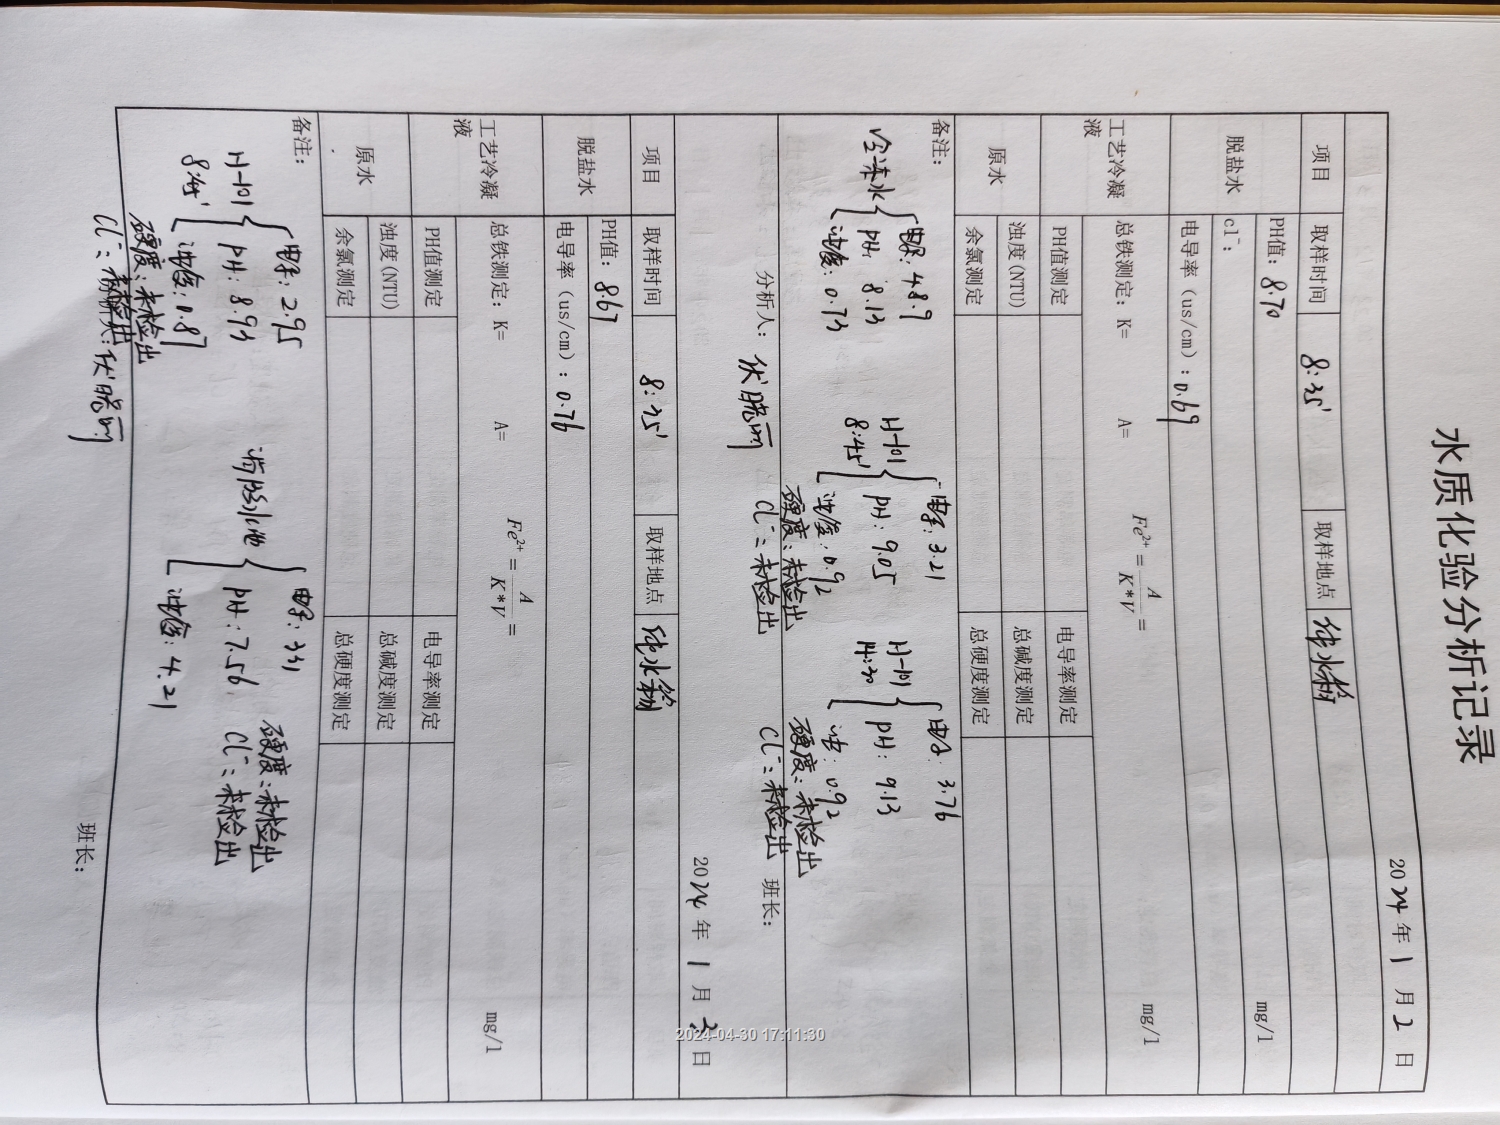 水质化验分析记录
2024年1月2日
项目 取样时间 8:35' 取样地点 纯水箱
脱盐水 PH值: 8.70 mg/l
cl⁻:
电导率 (us/cm): 0.69
工艺冷凝液 总铁测定: K= A= Fe²⁺ = A / K*V = mg/l
原水 PH值测定 电导率测定
浊度(NTU) 总碱度测定
余氯测定 总硬度测定
备注:
冷冻水 电导: 48.9
pH: 8.13
浊度: 0.73
H-101 8:45' 电导: 3.21
pH: 9.05
浊度: 0.92
硬度: 未检出
Cl⁻: 未检出
H-101 14:30 电导: 3.76
pH: 9.13
浊: 0.92
硬度: 未检出
Cl⁻: 未检出
分析人: 伏晓丽 班长:
2024年1月3日
项目 取样时间 8:35' 取样地点 纯水箱
脱盐水 PH值: 8.67
电导率 (us/cm): 0.76
工艺冷凝液 总铁测定: K= A= Fe²⁺ = A / K*V = mg/l
原水 PH值测定 电导率测定
浊度(NTU) 总碱度测定
余氯测定 总硬度测定
备注:
H-101 8:45' 电导: 2.95
pH: 8.93
浊度: 0.87
硬度: 未检出
Cl⁻: 未检出
消防水池 电导: 331
pH: 7.56
浊度: 4.21
硬度: 未检出
Cl⁻: 未检出
伏晓丽 班长:
2024-04-30 17:11:30